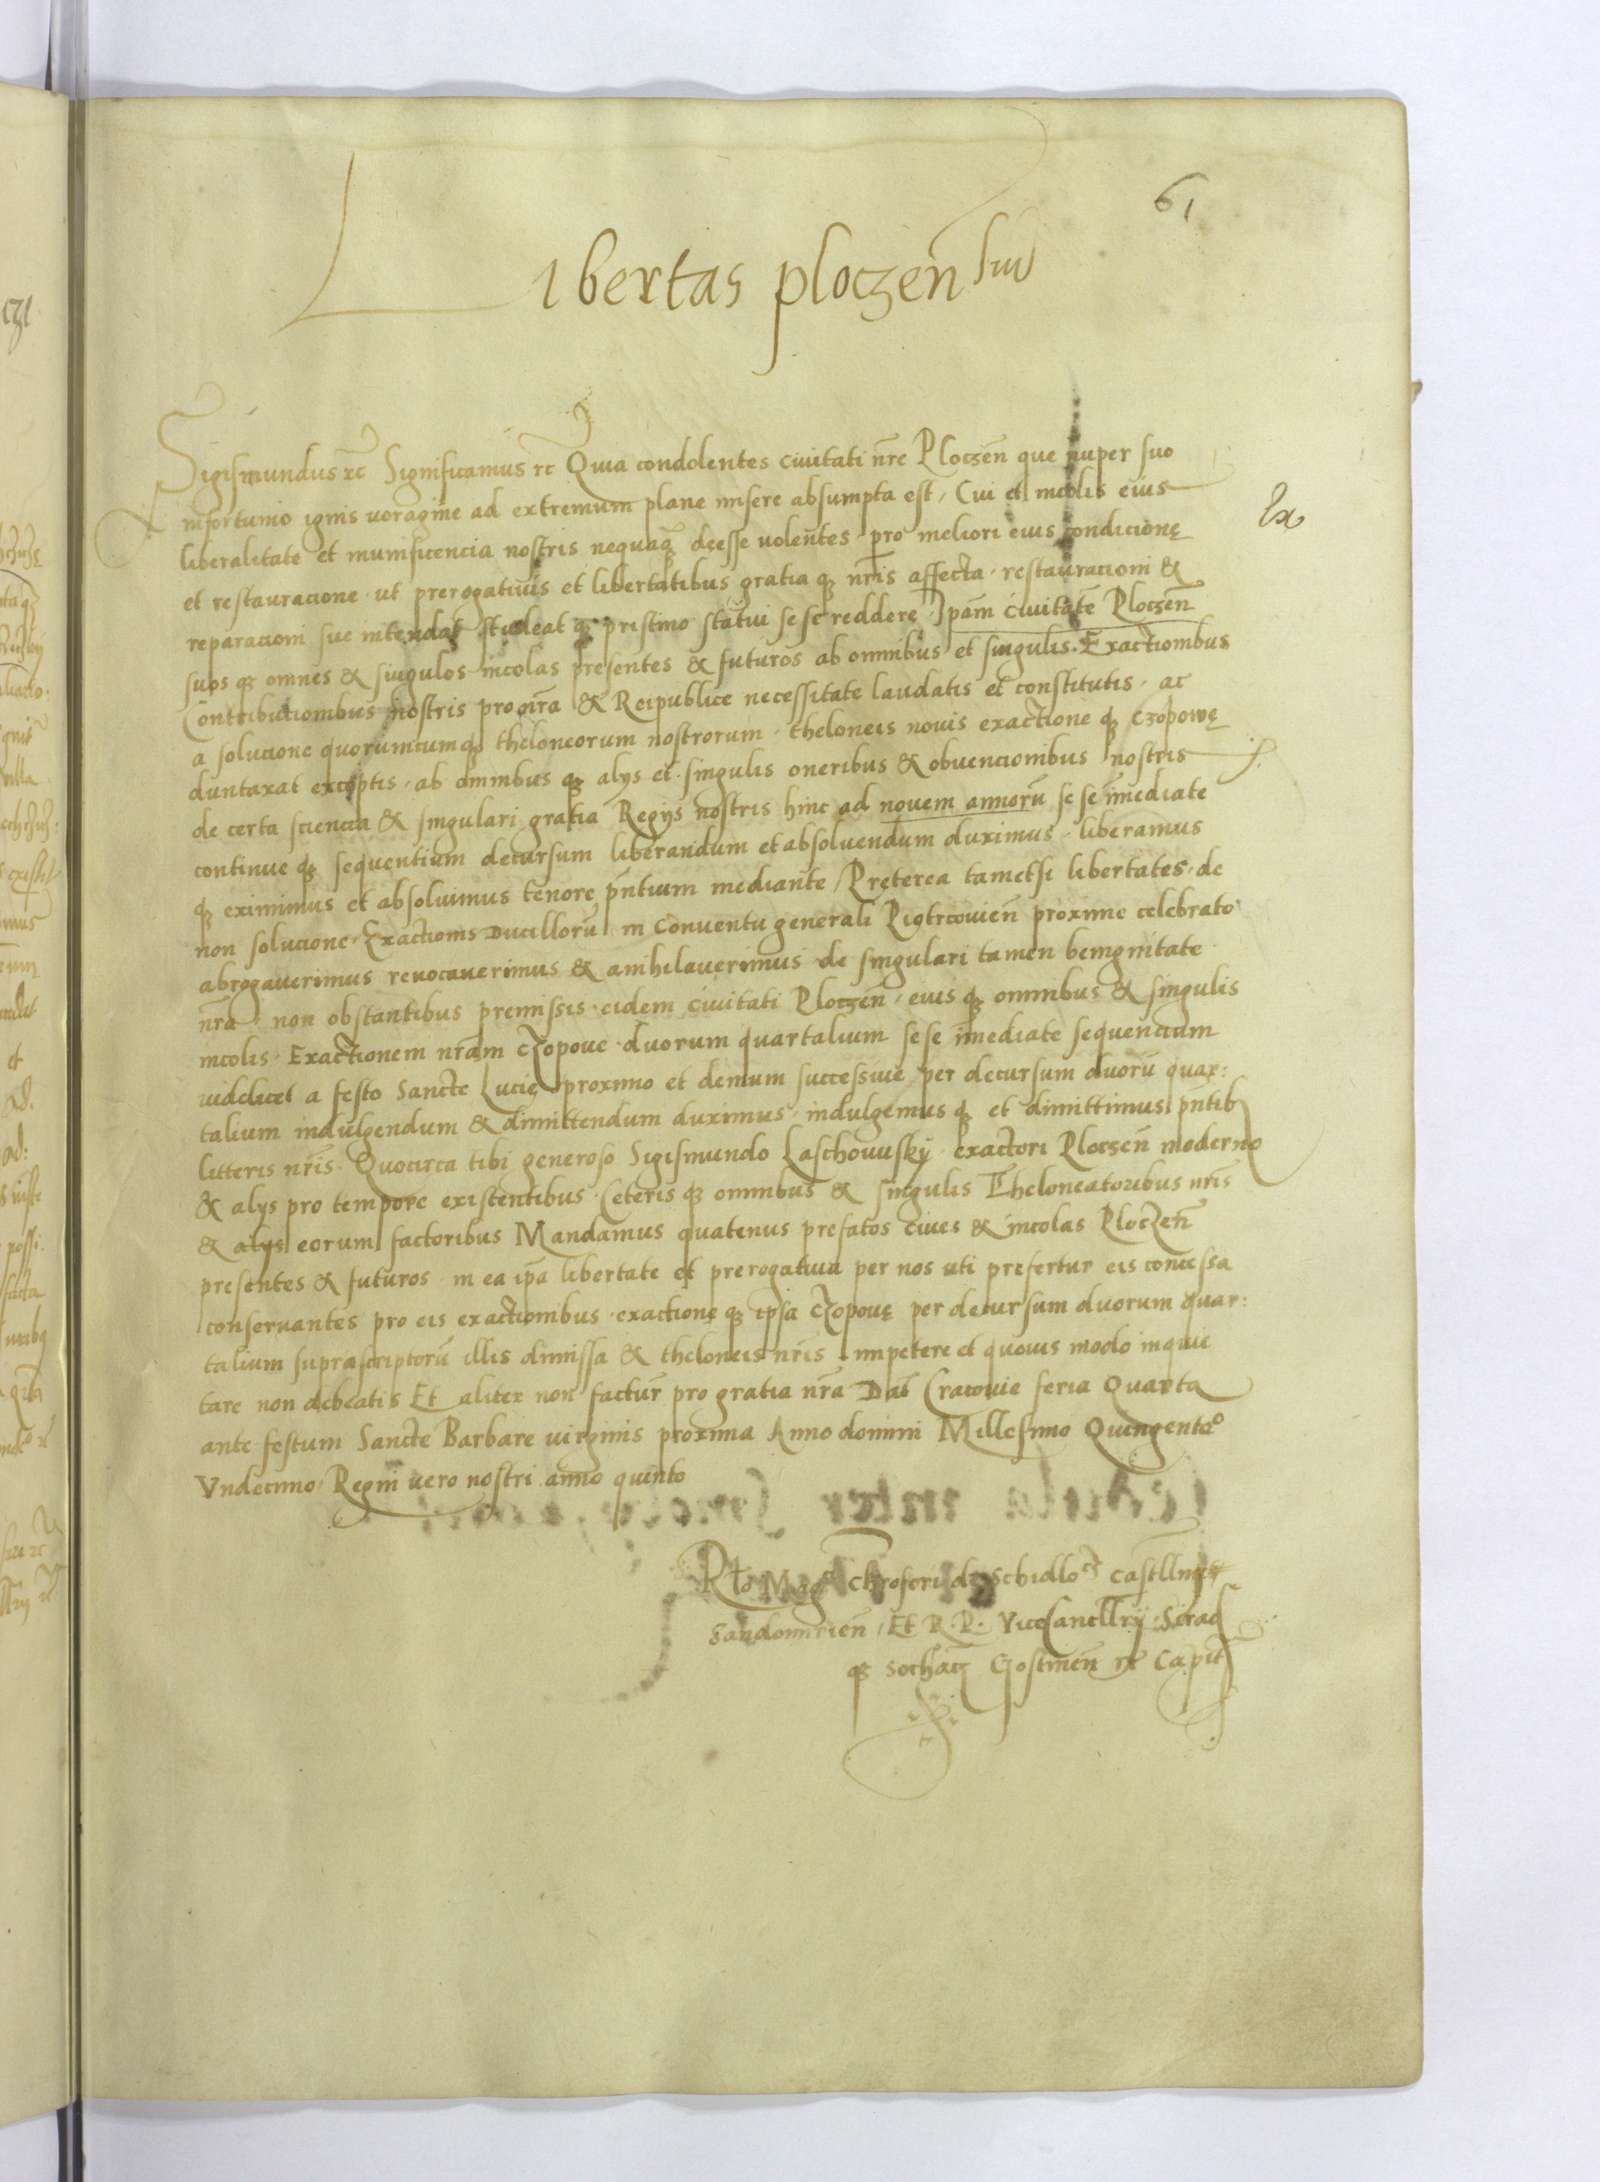 61
Libertas ploczen̄ siu
Sigismundus rc̄ Significamus rc̄ Quia condolentes ciuitati nr̄e Ploczen̄ que nuper suo
infortunio ignis uoragine ad extremum plane misere absumpta est, Cui et incolis eius
liberalitate et munificencia nostris nequaq̄ deesse uolentes pro meliori eius condicionę
et restauracione · ut prerogatiuis et libertatibus gratia qȝ nr̄is affecta · restauracioni &
reparacioni sue intendat studeat qȝ pristino statui se se reddere Ipam̄ ciuitatem̄ Ploczen̄
suos qȝ omnes & singulos incolas presentes & futuros ab omnibus et singulis · Exactionibus
Contributionibus nostris pro nr̄a & Reipublice necessitate laudatis et constitutis · ac
a solucione quorumcumqȝ theloneorum nostrorum · theloneis nouis exactione qȝ czopowę
duntaxat exceptis · ab omnibus qȝ alys et singulis oneribus & obuencionibus nostris
de certa sciencia & singulari gratia Regijs nostris hinc ad nouem annorū se se īmediate
continue qȝ sequentium decursum liberandum et absoluendum duximus · liberamus
qȝ eximimus et absoluimus tenore pn̄tium mediante / Pręterea tametsi libertates · de
non solucione · Exactionis Ducillorū in Conuentu generali Piotrcouien̄ proxime celebrato
abrogauerimus reuocauerimus & anihilauerimus de singulari tamen benignitate
nr̄a · non obstantibus premissis · eidem ciuitati Ploczen̄ · eius qȝ omnibus & singulis
incolis · Exactionem nr̄am czopoue · duorum quartalium se se īmediate sequencium
videlicet a festo Sancte Lucię proximo et demum successiue per decursum duorū quar:
talium indulgendum & dimittendum duximus · indulgemus qȝ et dimittimus pn̄tib
litteris nr̄is · Quocirca tibi generoso Sigismundo Laschouusky · exactori Ploczen̄ moderno
& alys pro tempore existentibus · Ceteris qȝ omnibus & singulis Theloneatoribus nr̄is
& alys eorum factoribus Mandamus quatenus prefatos ciues & incolas Ploczen̄
presentes & futuros · in ea ipa̅ libertate et prerogatiua per nos uti prefertur eis concessa
conseruantes pro eis exactionibus · exactionę qȝ ipsa czopouę per decursum duorum quar:
talium suprascriptorū illis dimissa & theloneis nr̄is impetere et quouis modo inquie
tare non debeatis Et aliter non factur̄ pro gratia nr̄a Dat̄ Cracouie feria Quarta
ante festum Sancte Barbare uirginis proxima Anno domini Millesimo Quingentᵒ
Vndecimo · Regni vero nostri anno quinto
Rło Mag ᶜⁱ Chrofori de Schidlo ᶜᶻ Castllm̄
Sandomirien̄ / Et R · P · ViceCancllrij · Sirad
qȝ Sochacȝ Gostinen̄ rc̄ Capit̄